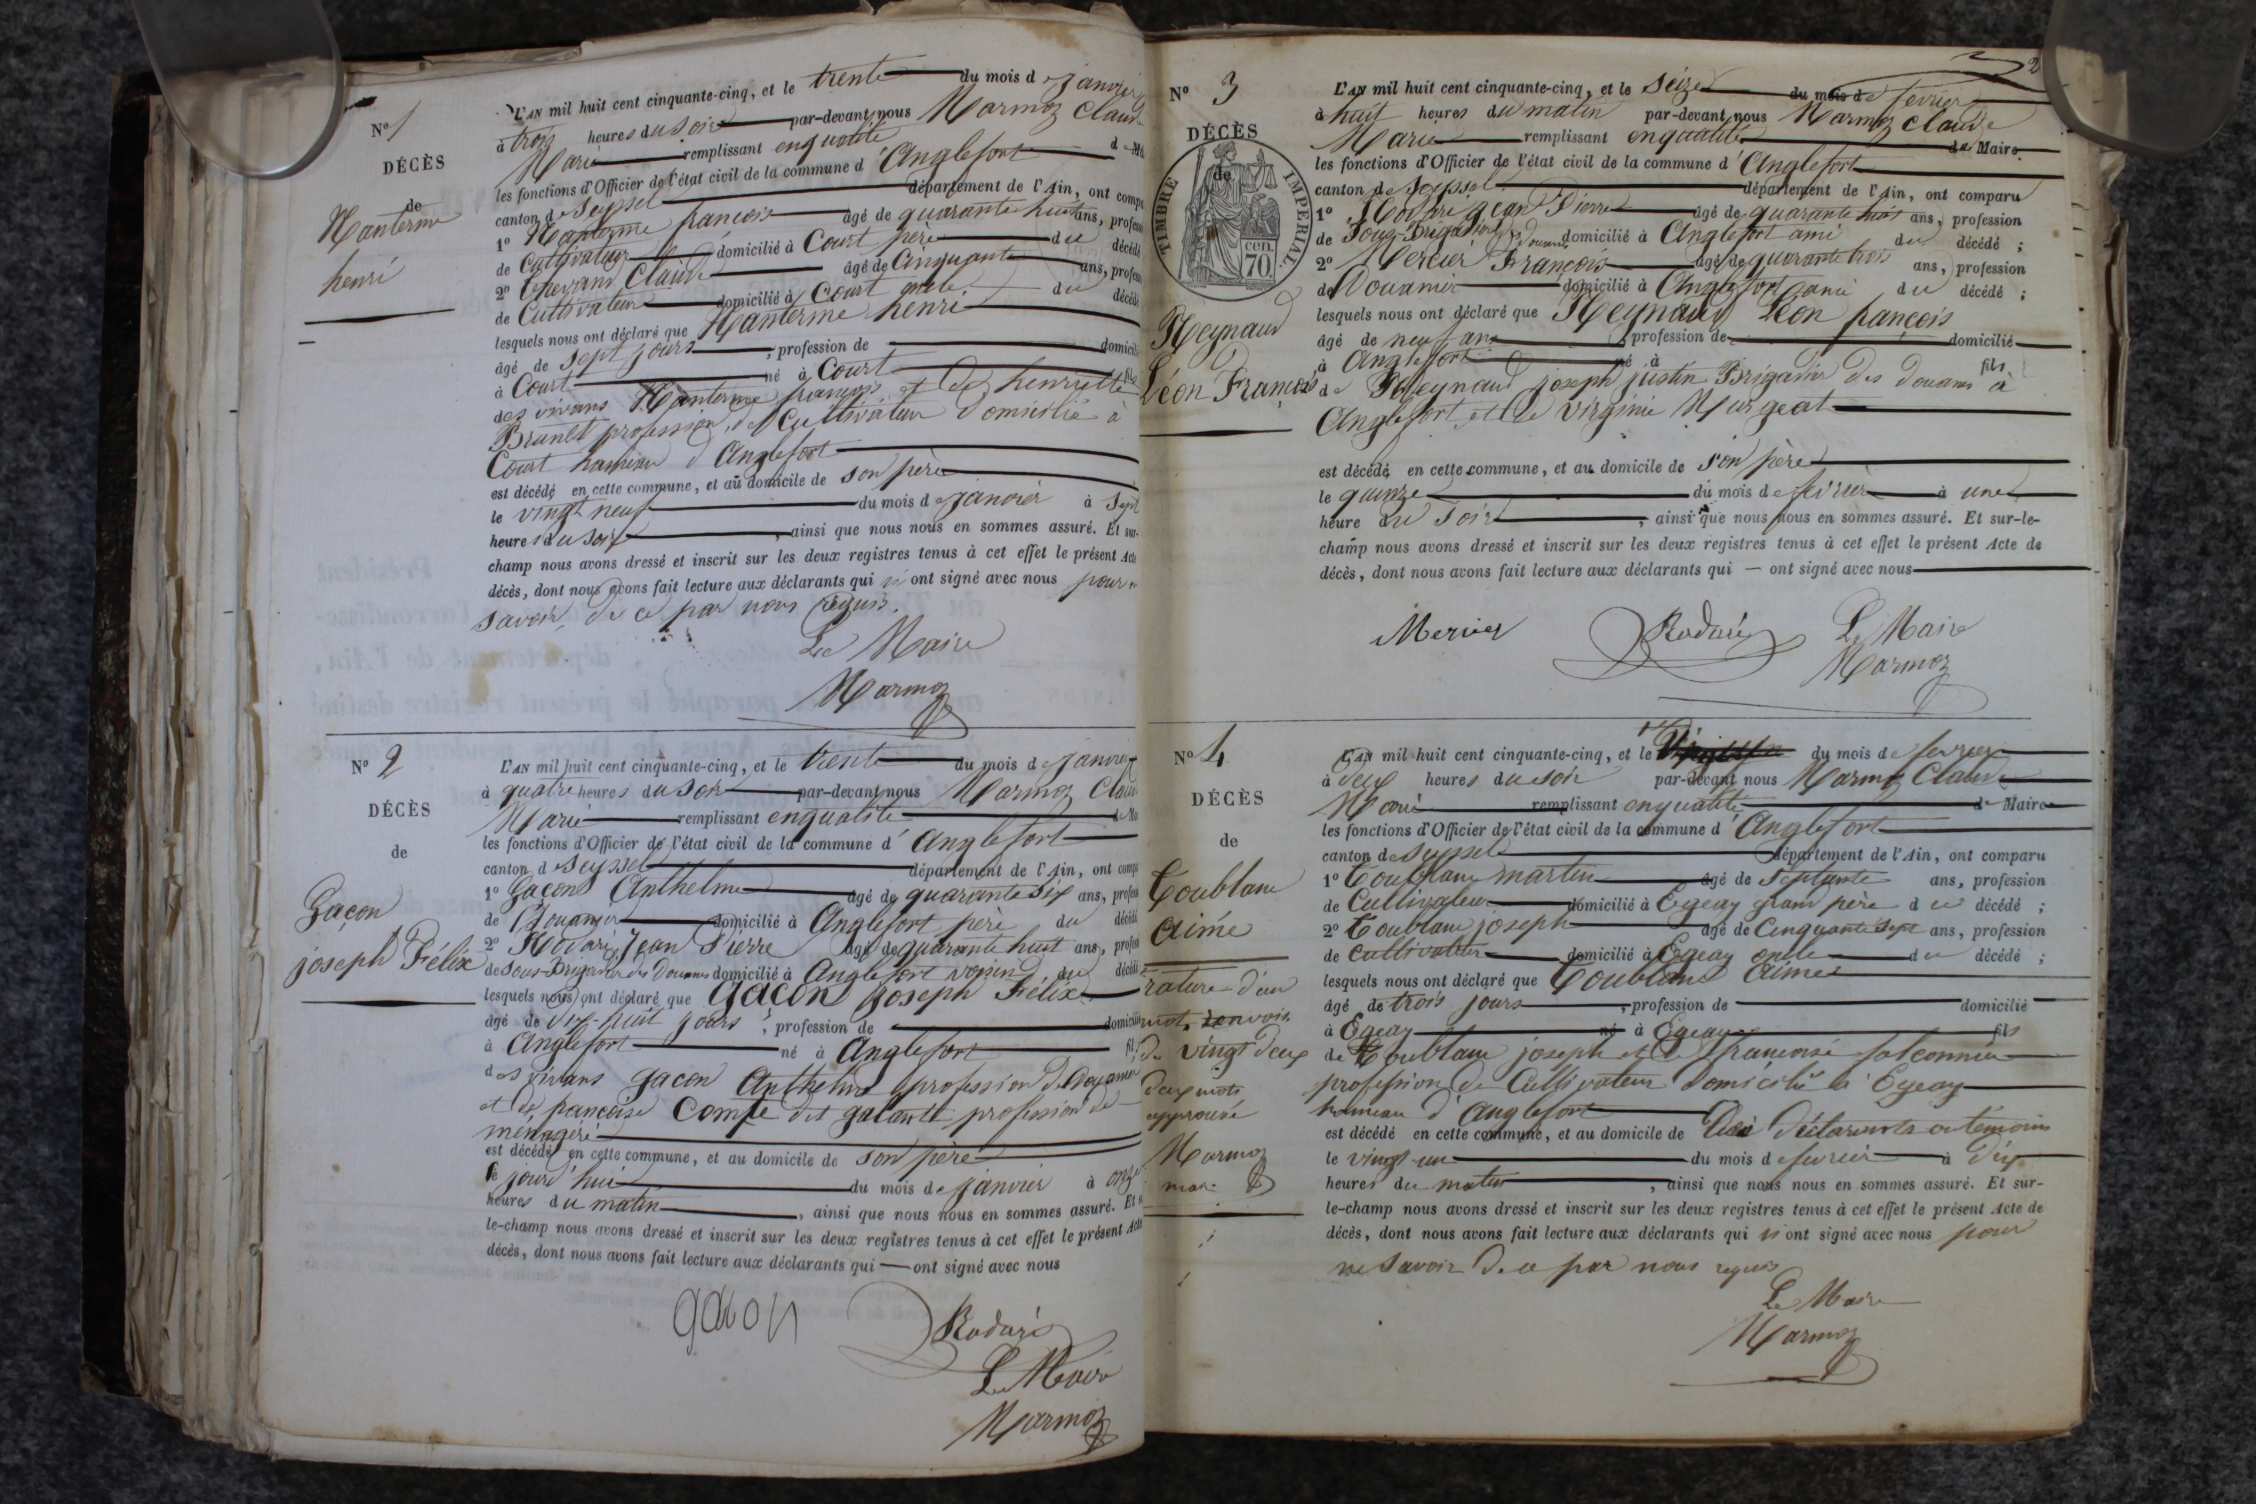 N° 1
DÉCÈS
de
Nanterme
henri
L'AN mil huit cent cinquante-cinq, et le trente du mois de janvier
à trois heures du soir par-devant nous Marmoz Claude
Marie remplissant en qualité d
les fonctions d'Officier de l'état civil de la commune d'Anglefort
canton de Seyssel département de l'Ain, ont comparu
1° Nanterme françois âgé de quarante huit ans, profession
de Cultivateur domicilié à Court père du décédé
2° Claude âgé de Cinquante ans, profession
de Cultivateur domicilié à Court oncle du décédé
lesquels nous ont déclaré que Nanterme henri
âgé de sept jours ; profession de domicilié
à Court né à Court fils
des vivans Nanterme françois et de henriette
Brunet profession de Cultivateur domicilié à
Court hameau d'Anglefort
est décédé en cette commune, et au domicile de son père
le vingt neuf du mois de janvier à sept
heures du soir, ainsi que nous nous en sommes assuré. Et sur-
champ nous avons dressé et inscrit sur les deux registres tenus à cet effet le présent Acte
décès, dont nous avons fait lecture aux déclarants qui n'ont signé avec nous pour ne
savoir de ce par nous requis.
Le Maire
Marmoz
N° 2
DÉCÈS
de
Gaçon
joseph Félix
L'AN mil huit cent cinquante-cinq, et le trente du mois de janvier
à quatre heures du soir par-devant nous Marmoz Claude
Marie remplissant en qualité de
les fonctions d'Officier de l'état civil de la commune d'Anglefort
canton de Seyssel département de l'Ain, ont comparu
1° Gacon Anthelme âgé de quarante six ans, profession
de Douanier domicilié à Anglefort père du décédé
2° Rodari Jean Pierre âgé de quarante huit ans, profession
de Sous-Brigadier des Douanes domicilié à Anglefort voisin du décédé
lesquels nous ont déclaré que Gacon joseph Félix
âgé de dix-huit jours ; profession de domicilié
à Anglefort né à Anglefort fils
des vivans gacon Anthelme profession de Douanier
et de francoise Compte dit galant profession de
ménagère
est décédé en cette commune, et au domicile de son père
le jourd'hui du mois de janvier à onze
heures du matin, ainsi que nous nous en sommes assuré. Et
le-champ nous avons dressé et inscrit sur les deux registres tenus à cet effet le présent Acte
décès, dont nous avons fait lecture aux déclarants qui — ont signé avec nous
gacon
Rodari
Le Maire
Marmoz
2
N° 3
DÉCÈS
de
TIMBRE IMPERIAL
70 cen.
Reynaud
Léon François
L'AN mil huit cent cinquante-cinq, et le seize du mois de fevrier
à huit heures du matin par-devant nous Marmoz claude
Marie remplissant en qualité de Maire
les fonctions d'Officier de l'état civil de la commune d'Anglefort
canton de Seyssel département de l'Ain, ont comparu
1° Rodari jean Pierre âgé de quarante huit ans, profession
de Sous-Brigadier des douanes domicilié à Anglefort ami du décédé ;
2° Mercier François âgé de quarante trois ans, profession
de Douanier domicilié à Anglefort ami du décédé ;
lesquels nous ont déclaré que Reynaud Léon françois
âgé de neuf ans profession de domicilié
à Anglefort né à fils
de Reynaud joseph justin Brigadier des douanes à
Anglefort et de virginie Murgeat
est décédé en cette commune, et au domicile de son père
le quinze du mois de février à une
heure du soir, ainsi que nous nous en sommes assuré. Et sur-le-
champ nous avons dressé et inscrit sur les deux registres tenus à cet effet le présent Acte de
décès, dont nous avons fait lecture aux déclarants qui — ont signé avec nous
Mercier
Rodari
Le Maire
Marmoz
N° 4
DÉCÈS
de
Toublanc
Aimé
rature d'un
mot, renvois
de vingt deux
deux mots
approuvé
Marmoz
L'AN mil huit cent cinquante-cinq, et le du mois de fevrier
à deux heures du soir par-devant nous Marmoz Claude
Marie remplissant en qualité de Maire
les fonctions d'Officier de l'état civil de la commune d'Anglefort
canton de Seyssel département de l'Ain, ont comparu
1° Toublanc martin âgé de Septante ans, profession
de Cultivateur domicilié à Egeay grand père du décédé ;
2° Toublanc joseph âgé de Cinquante Sept ans, profession
de cultivateur domicilié à Egeay oncle du décédé ;
lesquels nous ont déclaré que Toublanc Aimé
âgé de trois jours, profession de domicilié
à Egeay né à Egeay fils
de Toublanc joseph et de francoise falconnier
profession de Cultivateur domicilié à Egeay
hameau d'Anglefort
est décédé en cette commune, et au domicile de déclarants ou témoins
le vingt un du mois de fevrier à dix
heures du matin, ainsi que nous nous en sommes assuré. Et sur-
le-champ nous avons dressé et inscrit sur les deux registres tenus à cet effet le présent Acte de
décès, dont nous avons fait lecture aux déclarants qui n'ont signé avec nous pour
ne savoir de ce par nous requis
Le Maire
Marmoz